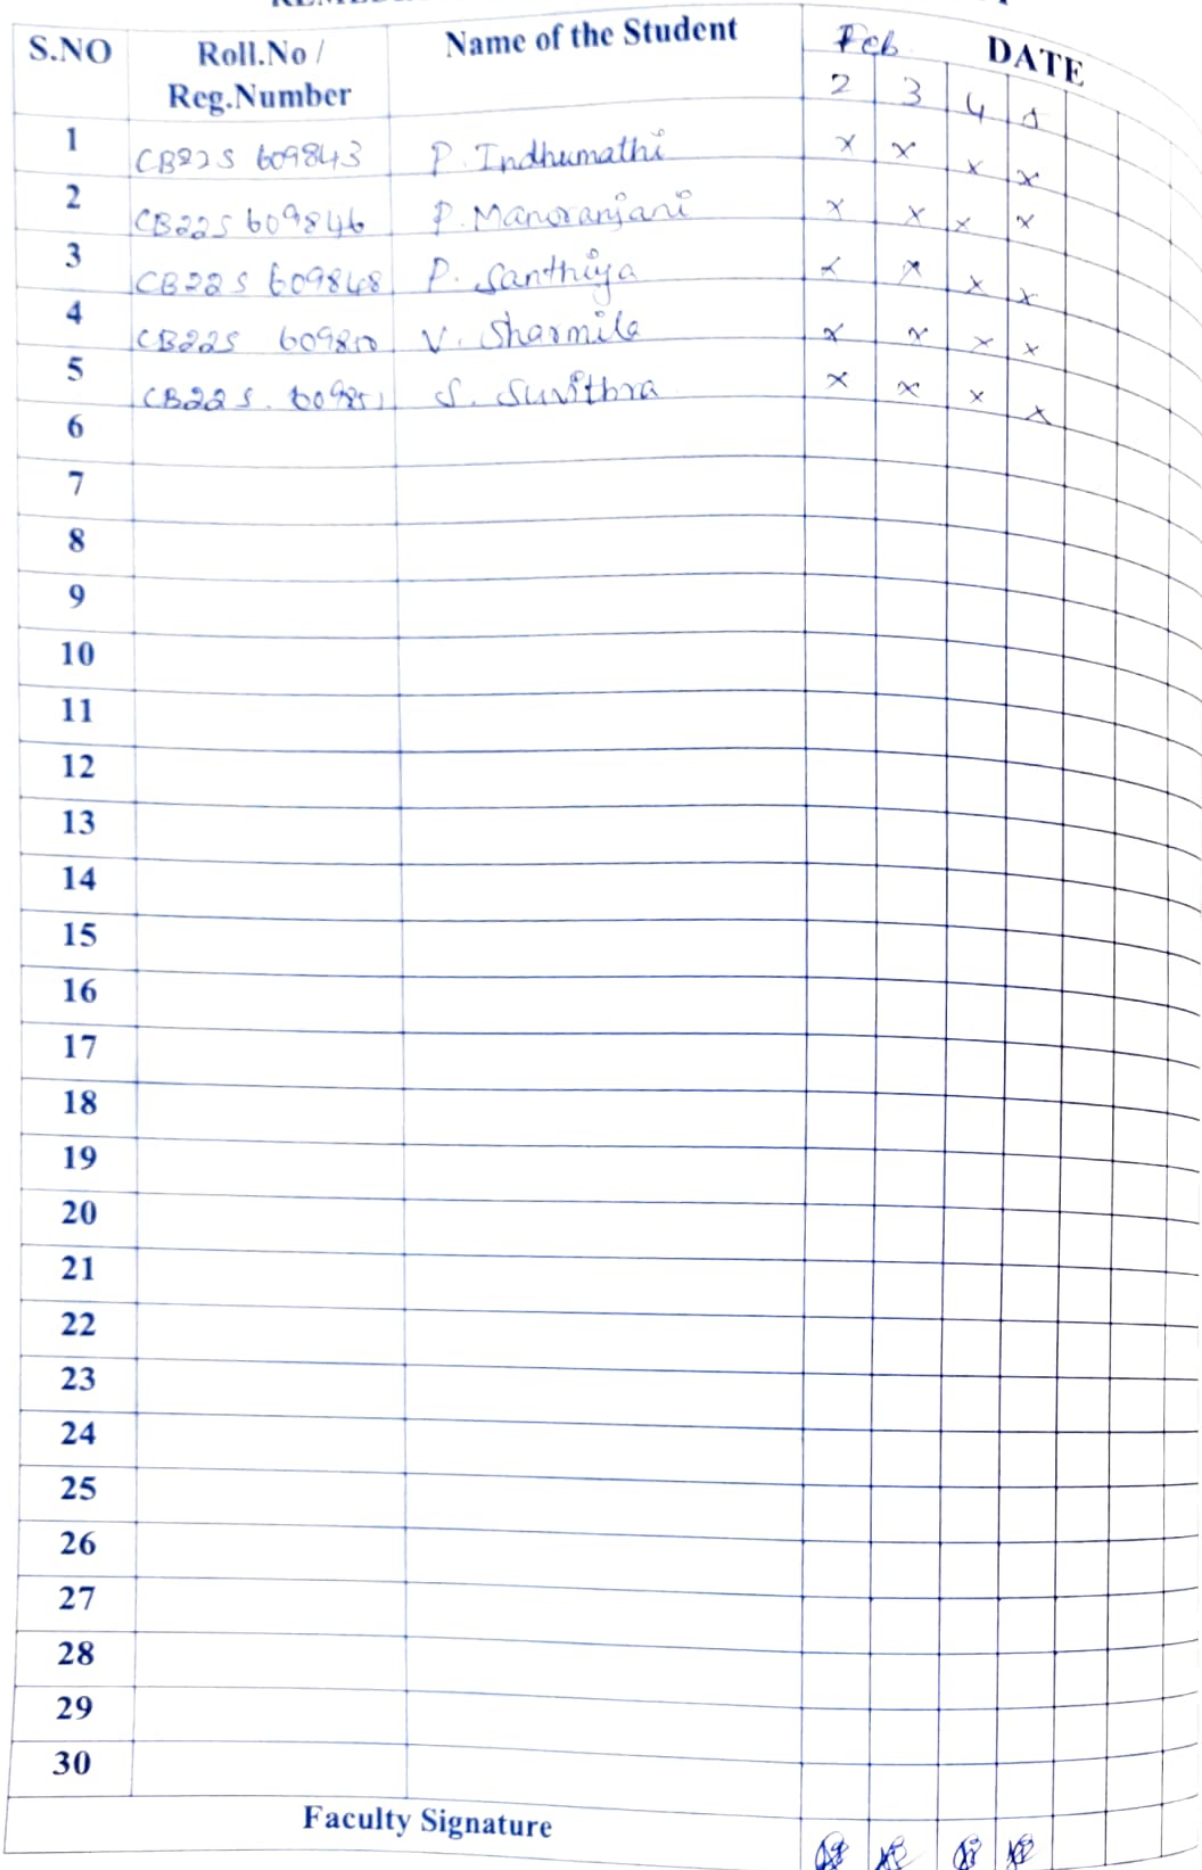 S.NO Roll.No / Reg.Number Name of the Student Feb DATE
2 3 4 5
1 CB22S 609843 P. Indhumathi x x x x
2 CB22S 609846 P. Manoranjani x x x x
3 CB22S 609848 P. Santhiya x x x x
4 CB22S 609850 V. Sharmila x x x x
5 CB22S. 609851 S. Suvithra x x x x
6
7
8
9
10
11
12
13
14
15
16
17
18
19
20
21
22
23
24
25
26
27
28
29
30
Faculty Signature